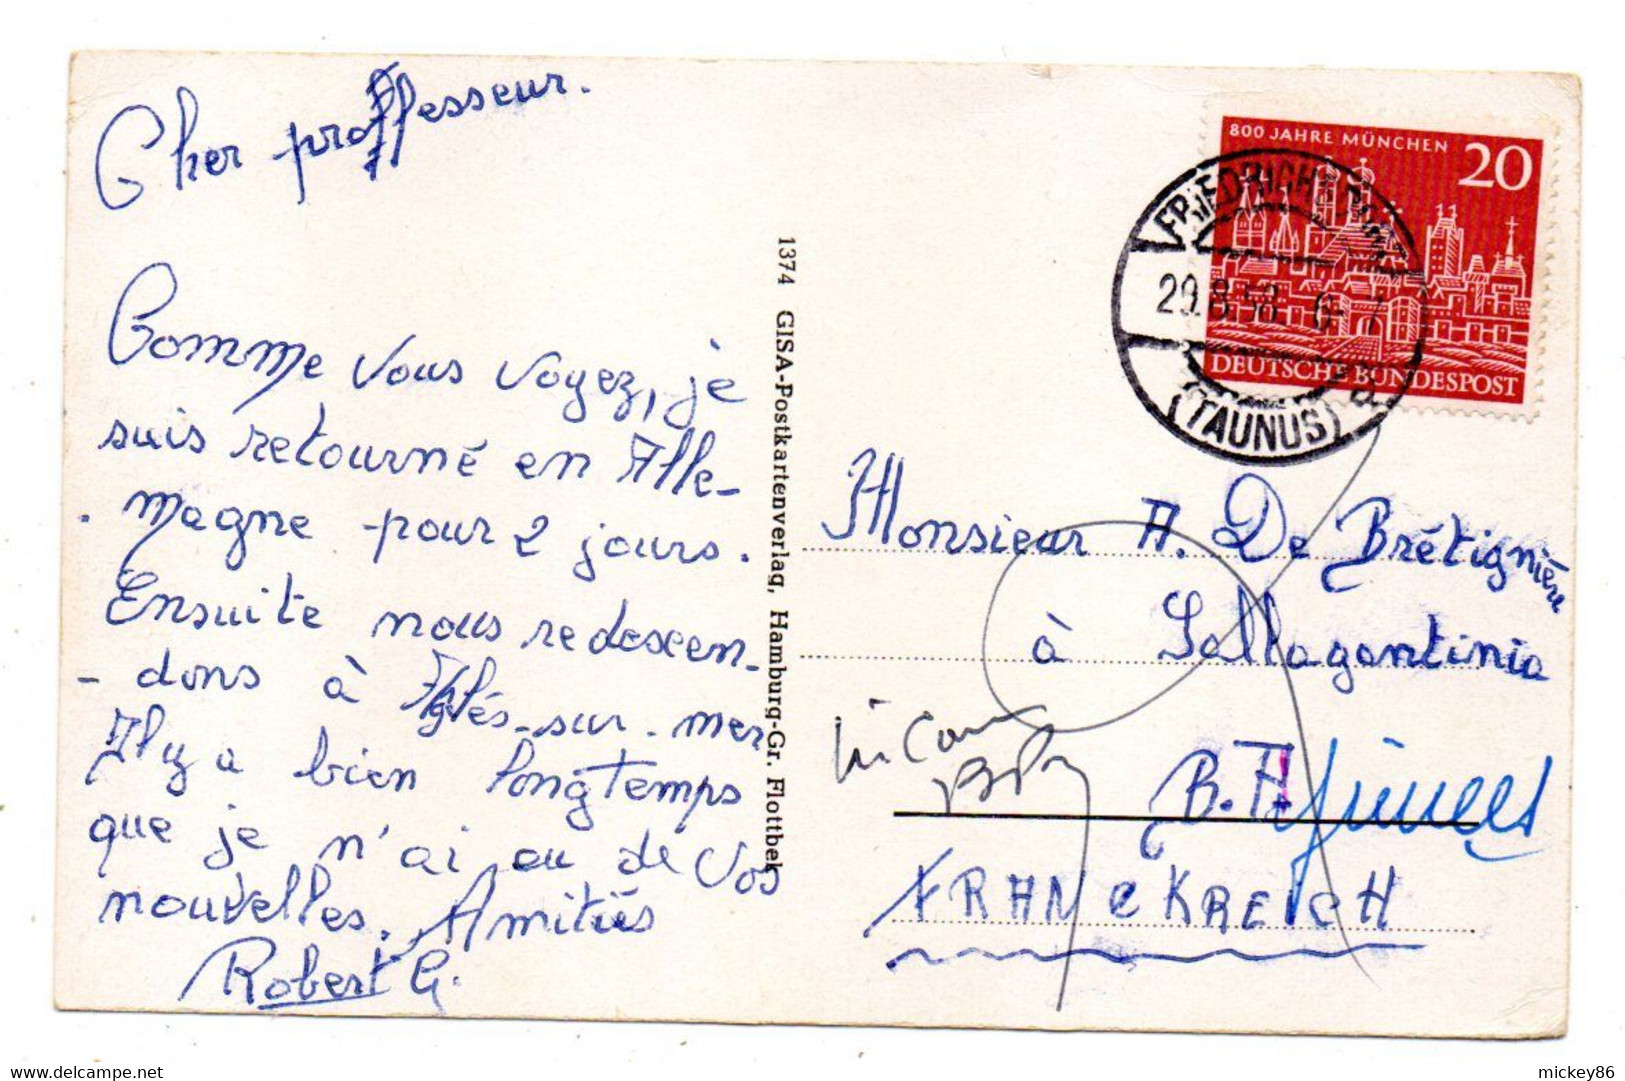 Cher proffesseur.
Comme vous voyez, je
suis retourné en Alle-
magne pour 2 jours.
Ensuite nous redescen-
- dons à Agelés-sur-mer
Il y a bien longtemps
que je n'ai eu de vos
nouvelles. Amitiés
Robert G.
1374 GISA-Postkartenverlag, Hamburg-Gr. Flottbek
800 JAHRE MÜNCHEN
20
DEUTSCHE BUNDESPOST
FRIEDRICHSDORF
29.8.58 6-7
(TAUNUS)
Monsieur A. De Brétignière
à Sallagontinia
B. A
FRANCKREICH
mickey86